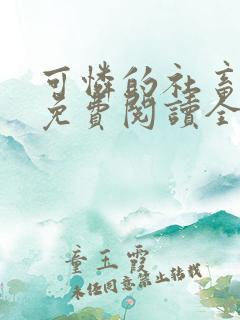 可憐的社畜
免費閱讀全
童玉霞
未经同意禁止转载